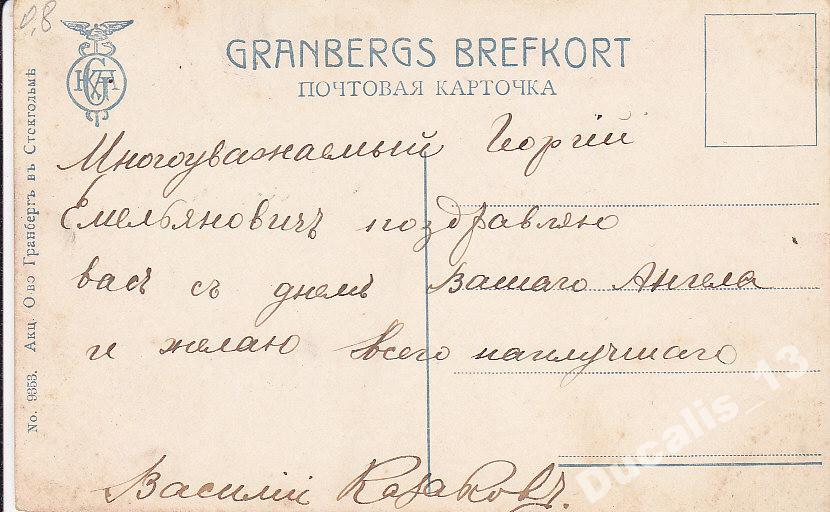 0,8
GRANBERGS BREFKORT
ПОЧТОВАЯ КАРТОЧКА
Многоуважаемый Георгій
Емельяновичъ поздравляю
васъ съ днемъ Вашаго Ангела
и желаю всего наилучшаго
Василій Казаковъ.
No. 9353. Акц. О-во Гранбергъ въ Стокгольмѣ
Ducalis_13